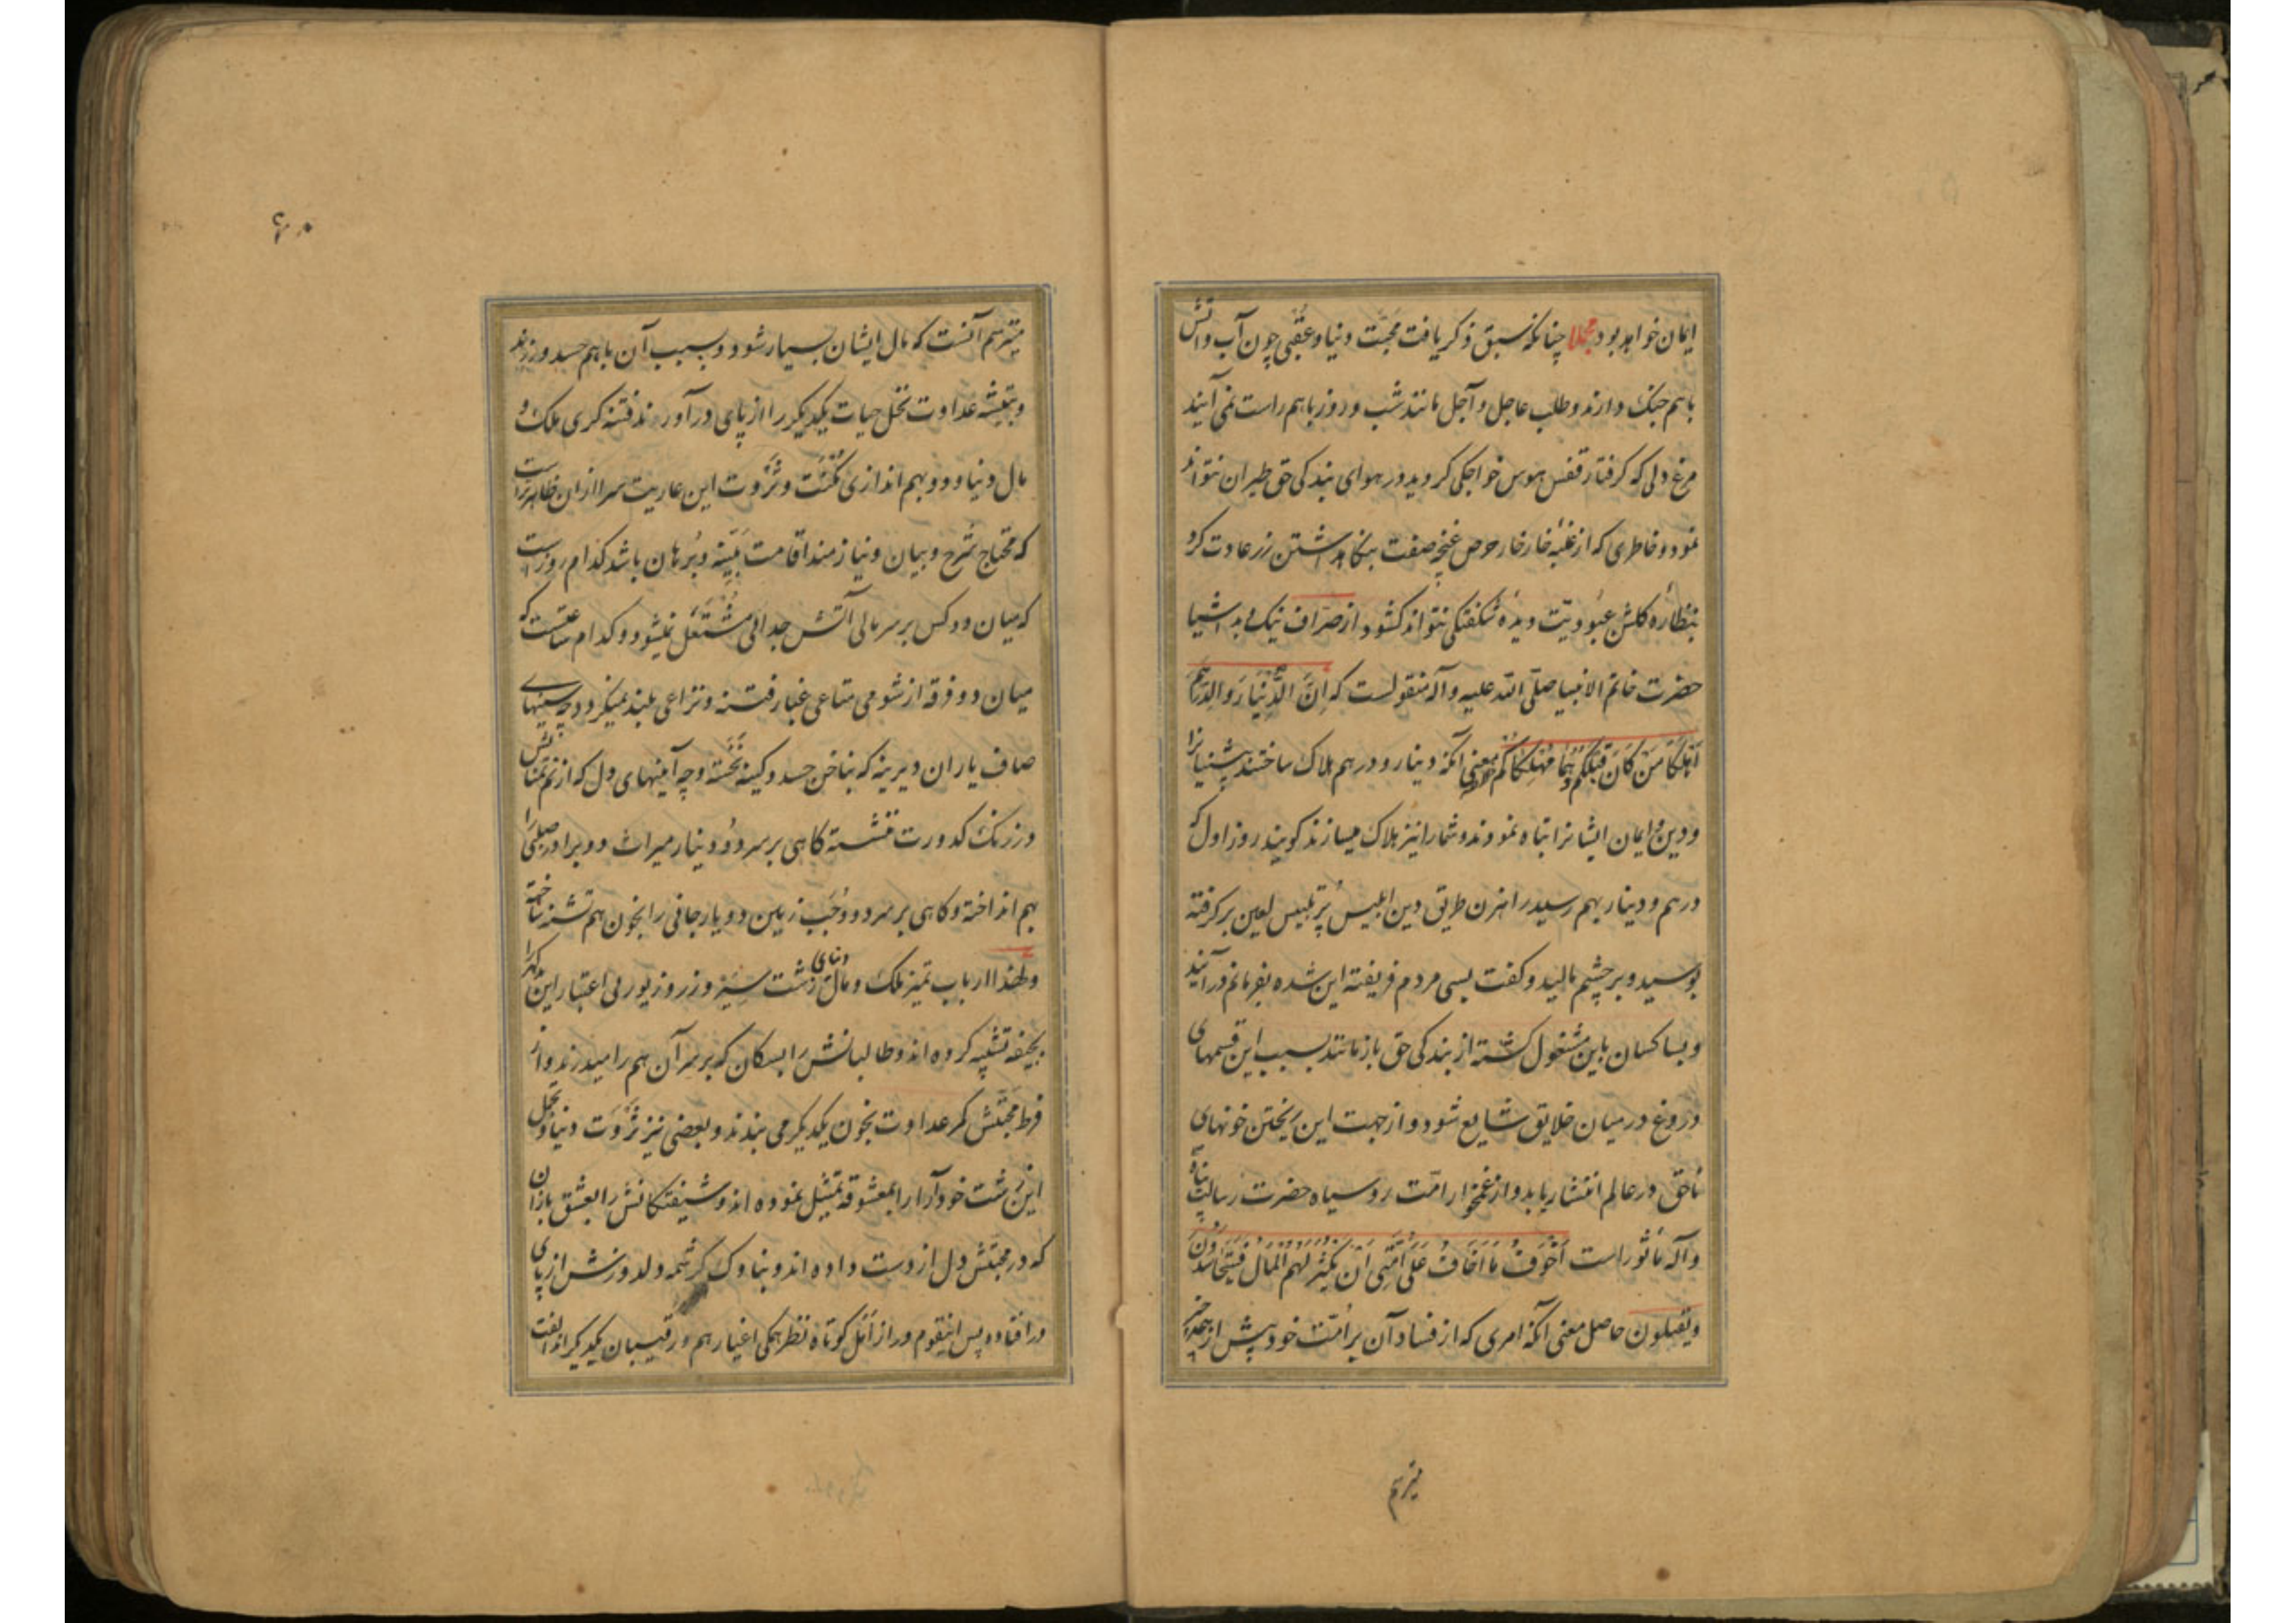 ایمان خواهد بود مجملا چنانکه سبق ذکر یافت محبّت دنیا و عُقبی چون آب و آتش
باهم جنک دارند و طلب عاجل و آجل مانند شب و روز باهم راست نمی آیند
مرغ دلی که کرفتار قفس هوس خواجکی کردید در هوای بندکی حق طیران نتواند
نمود و خاطری که از غلبهٔ خار خار حرص غنچه صفت بنکاهداشتن زر عادت کرد
بنظّارهٔ کلشن عبودیّت دیدهٔ شکفتکی نتواند کشود از صرّاف نیک و بد اشیا
حضرت خاتم الانبیا صلّی الله علیه و آله منقولست که اِنَّ الدّینارَ والدِّرهَمَ
اَهلَکا مَن کانَ قَبلَکُم وَهُما مُهلِکاکُم معنی آنکه دینار و درهم هلاک ساختند پیشینیانرا
و دین و ایمان ایشانرا تباه نمودند و شمارا نیز هلاک میسازند کویند روز اول که
درهم و دینار بهم رسید راهزن طریق دین ابلیس پُر تلبیس لعین برکرفته
بوسید و بر چشم مالید و کفت بسی مردم فریفتهٔ این شده بفرمانم درآیند
و بسا کسان باین مشغول کشته از بندکی حق باز مانند بسبب این قسمهای
دروغ در میان خلایق شایع شود و از جهت این ریختن خونهای
ناحق در عالم انتشار یابد و از غمخوار امّت روسیاه حضرت رسالت پناه
و آله ماثور است اَخوَفُ ما اَخافُ عَلی اُمَّتی اَن یَکثُرَ لَهُم المالُ فَیَتَحاسَدُونَ
و یقتلون حاصل معنی آنکه امری که از فساد آن بر اُمّت خود پیش از همه چیز
میترسم
میترسم آنست که مال ایشان بسیار شود و بسبب آن باهم حسد ورزند
و بتیشهٔ عداوت نخل حیات یکدیکر را از پای درآورند فتنه کری ملک و
مال دنیا و دو بهم اندازی مُکنَت و ثَروت این عاریت سرا از ان ظاهرتر است
که محتاج شرح و بیان و نیازمند اقامت بیّنه و بُرهان باشد کدام روز است
که میان دو کس بر سر مالی آتش جدالی مُشتَعَل نمیشود و کدام ساعتست که
میان دو فرقه از شومی متاعی غبار فتنه و نزاعی بلند نمیکردد چه سینهای
صاف یاران دیرینه که بناخن حسد و کینه نخَسته و چه آینهای دل که از نَمِ تمنایش
در زنک کدورت ننشسته کاهی بر سر دو دینار میراث دو برادر صلبی را
بهم انداخته و کاهی بر سر دو وَجَب زمین دو یار جانی را بخون هم تشنه ساخته
و لهذا ارباب تمیز ملک و مال دنیای زشت سِیَر و زر و زیور بی اعتبار این
بجیفه تشبیه کرده اند و طالبانش را بسکان که بر سر آن هم را میدرند و از
فرط محبّتش کمر عداوت بخون یکدیکر می بندند و بعضی نیز ثَروت دنیا و تجمل
این زشت خودآرا را بمعشوقه تمثیل نموده اند و شیفتکانش را بعشق بازان
که در محبّتش دل از دست داده اند و بناوک کرشمه دلدوزش از پای
درافتاده پس اینقوم دراز اَمَل کوتاه نظر همکی اغیار هم و رقیبان یکدیکراند الفت